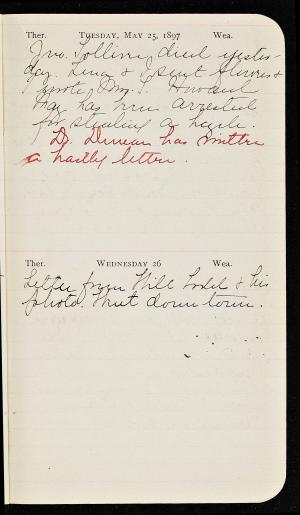 Ther. TUESDAY, MAY 25, 1897 Wea.
Jno. Tolliver died yester-
day. Lina & I sent flowers &
wrote Mrs. T. Howard
May has been arrested
for stealing a
Dr. Duncan has written
a hateful letter.
Ther. WEDNESDAY 26 Wea.
Letter from Will & his
photo. Went down town.